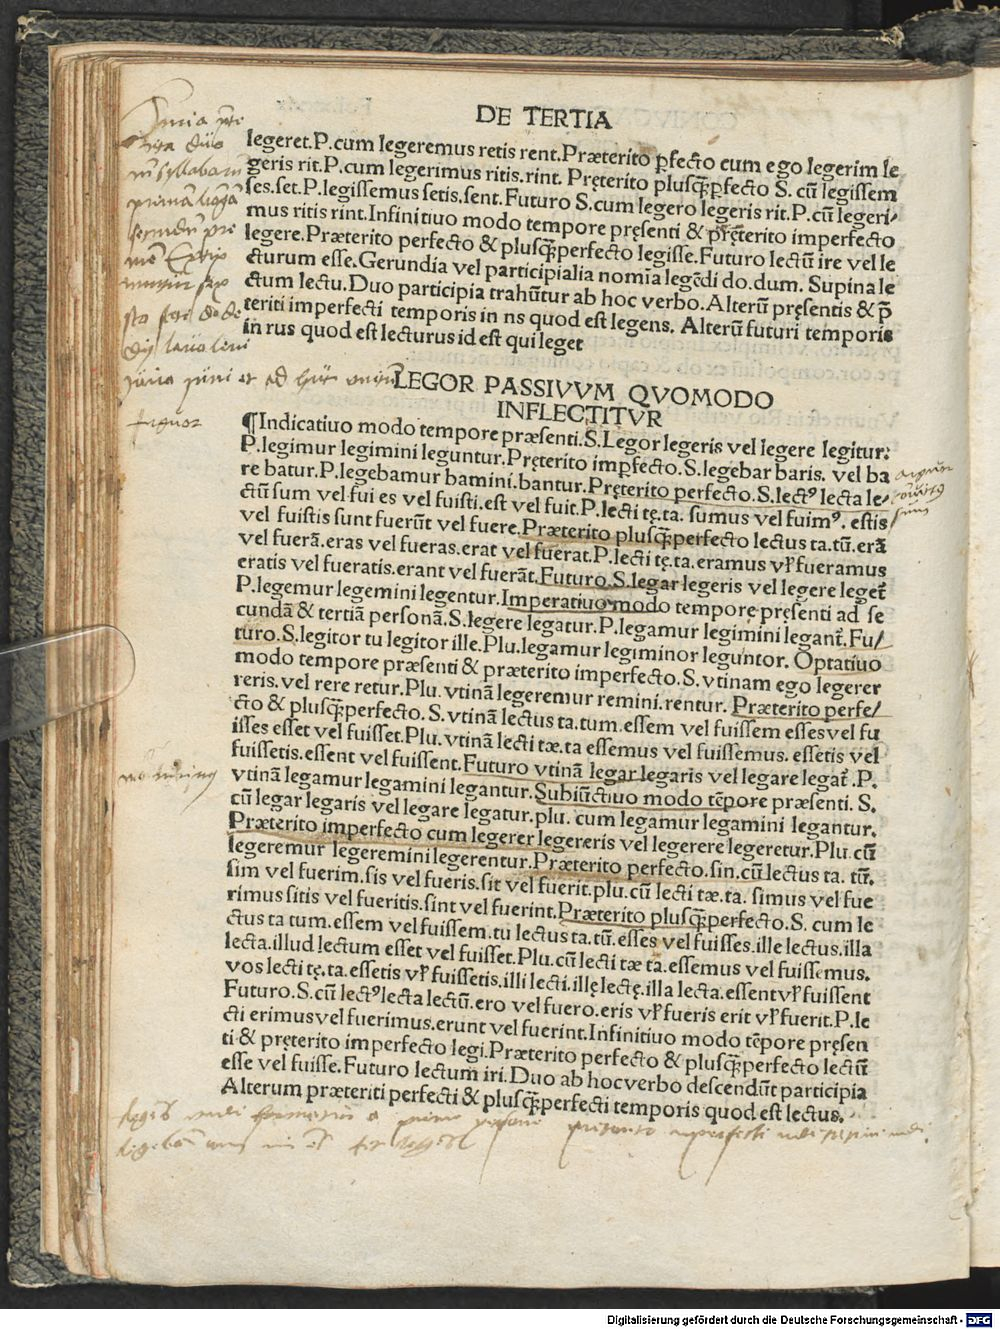 DE TERTIA
legeret.P.cum legeremus retis rent.Præterito ꝑfecto cum ego legerim le
geris rit.P.cum legerimus ritis.rint. Pręterito plusꝗ̃ꝑfecto S. cũ legissem
ses.set.P.legissemus setis.sent.Futuro S.cum legero legeris rit.P.cũ legeri/
mus ritis rint.Infinitiuo modo tempore pręsenti & pręterito imperfecto
legere.Præterito perfecto & plusꝗ̃perfecto legisse.Futuro lectũ ire vel le
cturum esse.Gerundia vel participialia nomĩa legẽdi do.dum. Supina le
ctum lectu.Duo participia trahũtur ab hoc verbo.Alterũ pręsentis & p̃
teriti imperfecti temporis in ns quod est legens. Alterũ futuri temporis
in rus quod est lecturus id est qui leget
LEGOR PASSIVVM QVOMODO
INFLECTITVR
¶Indicatiuo modo tempore præsenti.S.Legor legeris vel legere legitur:
P.legimur legimini leguntur.Pręterito imꝑfecto.S.legebar baris. vel ba
re batur.P.legebamur bamini.bantur.Pręterito perfecto.S.lectꝰ lecta le/
ctũ sum vel fui es vel fuisti.est vel fuit.P.lecti tę.ta. sumus vel fuimꝰ. estis
vel fuistis sunt fuerũt vel fuere.Præterito plusꝗ̃perfecto lectus ta.tũ.erã
vel fuerã.eras vel fueras.erat vel fuerat.P.lecti tę.ta.eramus vł fueramus
eratis vel fueratis.erant vel fuerãt.Futuro.S.legar legeris vel legere leget̃
P.legemur legemini legentur.Imperatiuo modo tempore pręsenti ad se
cundã & tertiã personã.S.legere legatur.P.legamur legimini legant̃.Fu/
turo.S.legitor tu legitor ille.Plu.legamur legiminor leguntor. Optatiuo
modo tempore præsenti & præterito imperfecto.S.vtinam ego legerer
reris.vel rere retur.Plu.vtinã legeremur remini.rentur. Præterito perfe/
cto & plusꝗ̃perfecto.S.vtinã lectus ta.tum.essem vel fuissem esses vel fu
isses esset vel fuisset.Plu.vtinã lecti tæ.ta essemus vel fuissemus. essetis vel
fuissetis.essent vel fuissent.Futuro vtinã legar legaris vel legare legat̃.P.
vtinã legamur legamini legantur.Subiũctiuo modo tẽpore præsenti. S.
cũ legar legaris vel legare legatur.plu. cum legamur legamini legantur.
Præterito imperfecto cum legerer legereris vel legerere legeretur.Plu.cũ
legeremur legeremini legerentur.Præterito perfecto.sin.cũ lectus ta. tũ.
sim vel fuerim.sis vel fueris.sit vel fuerit.plu.cũ lecti tæ.ta. simus vel fue
rimus sitis vel fueritis.sint vel fuerint.Præterito plusꝗ̃perfecto.S. cum le
ctus ta tum.essem vel fuissem.tu lectus ta.tũ.esses vel fuisses.ille lectus.illa
lecta.illud lectum esset vel fuisset.Plu.cũ lecti tæ ta.essemus vel fuissemus.
vos lecti tę.ta.essetis vł fuissetis.illi lecti.illę lectę.illa lecta.essent vł fuissent
Futuro.S.cũ lectꝰ lecta lectũ.ero vel fuero.eris vł fueris erit vł fuerit.P.le
cti erimus vel fuerimus.erunt vel fuerint.Infinitiuo modo tẽpore pręsen
ti & pręterito imperfecto legi.Præterito perfecto & plusꝗ̃perfecto lectũ
esse vel fuisse.Futuro lectum iri.Duo ab hoc verbo descendũt participia
Alterum præteriti perfecti & plusꝗ̃perfecti temporis quod est lectus.
Digitalisierung gefördert durch die Deutsche Forschungsgemeinschaft - DFG